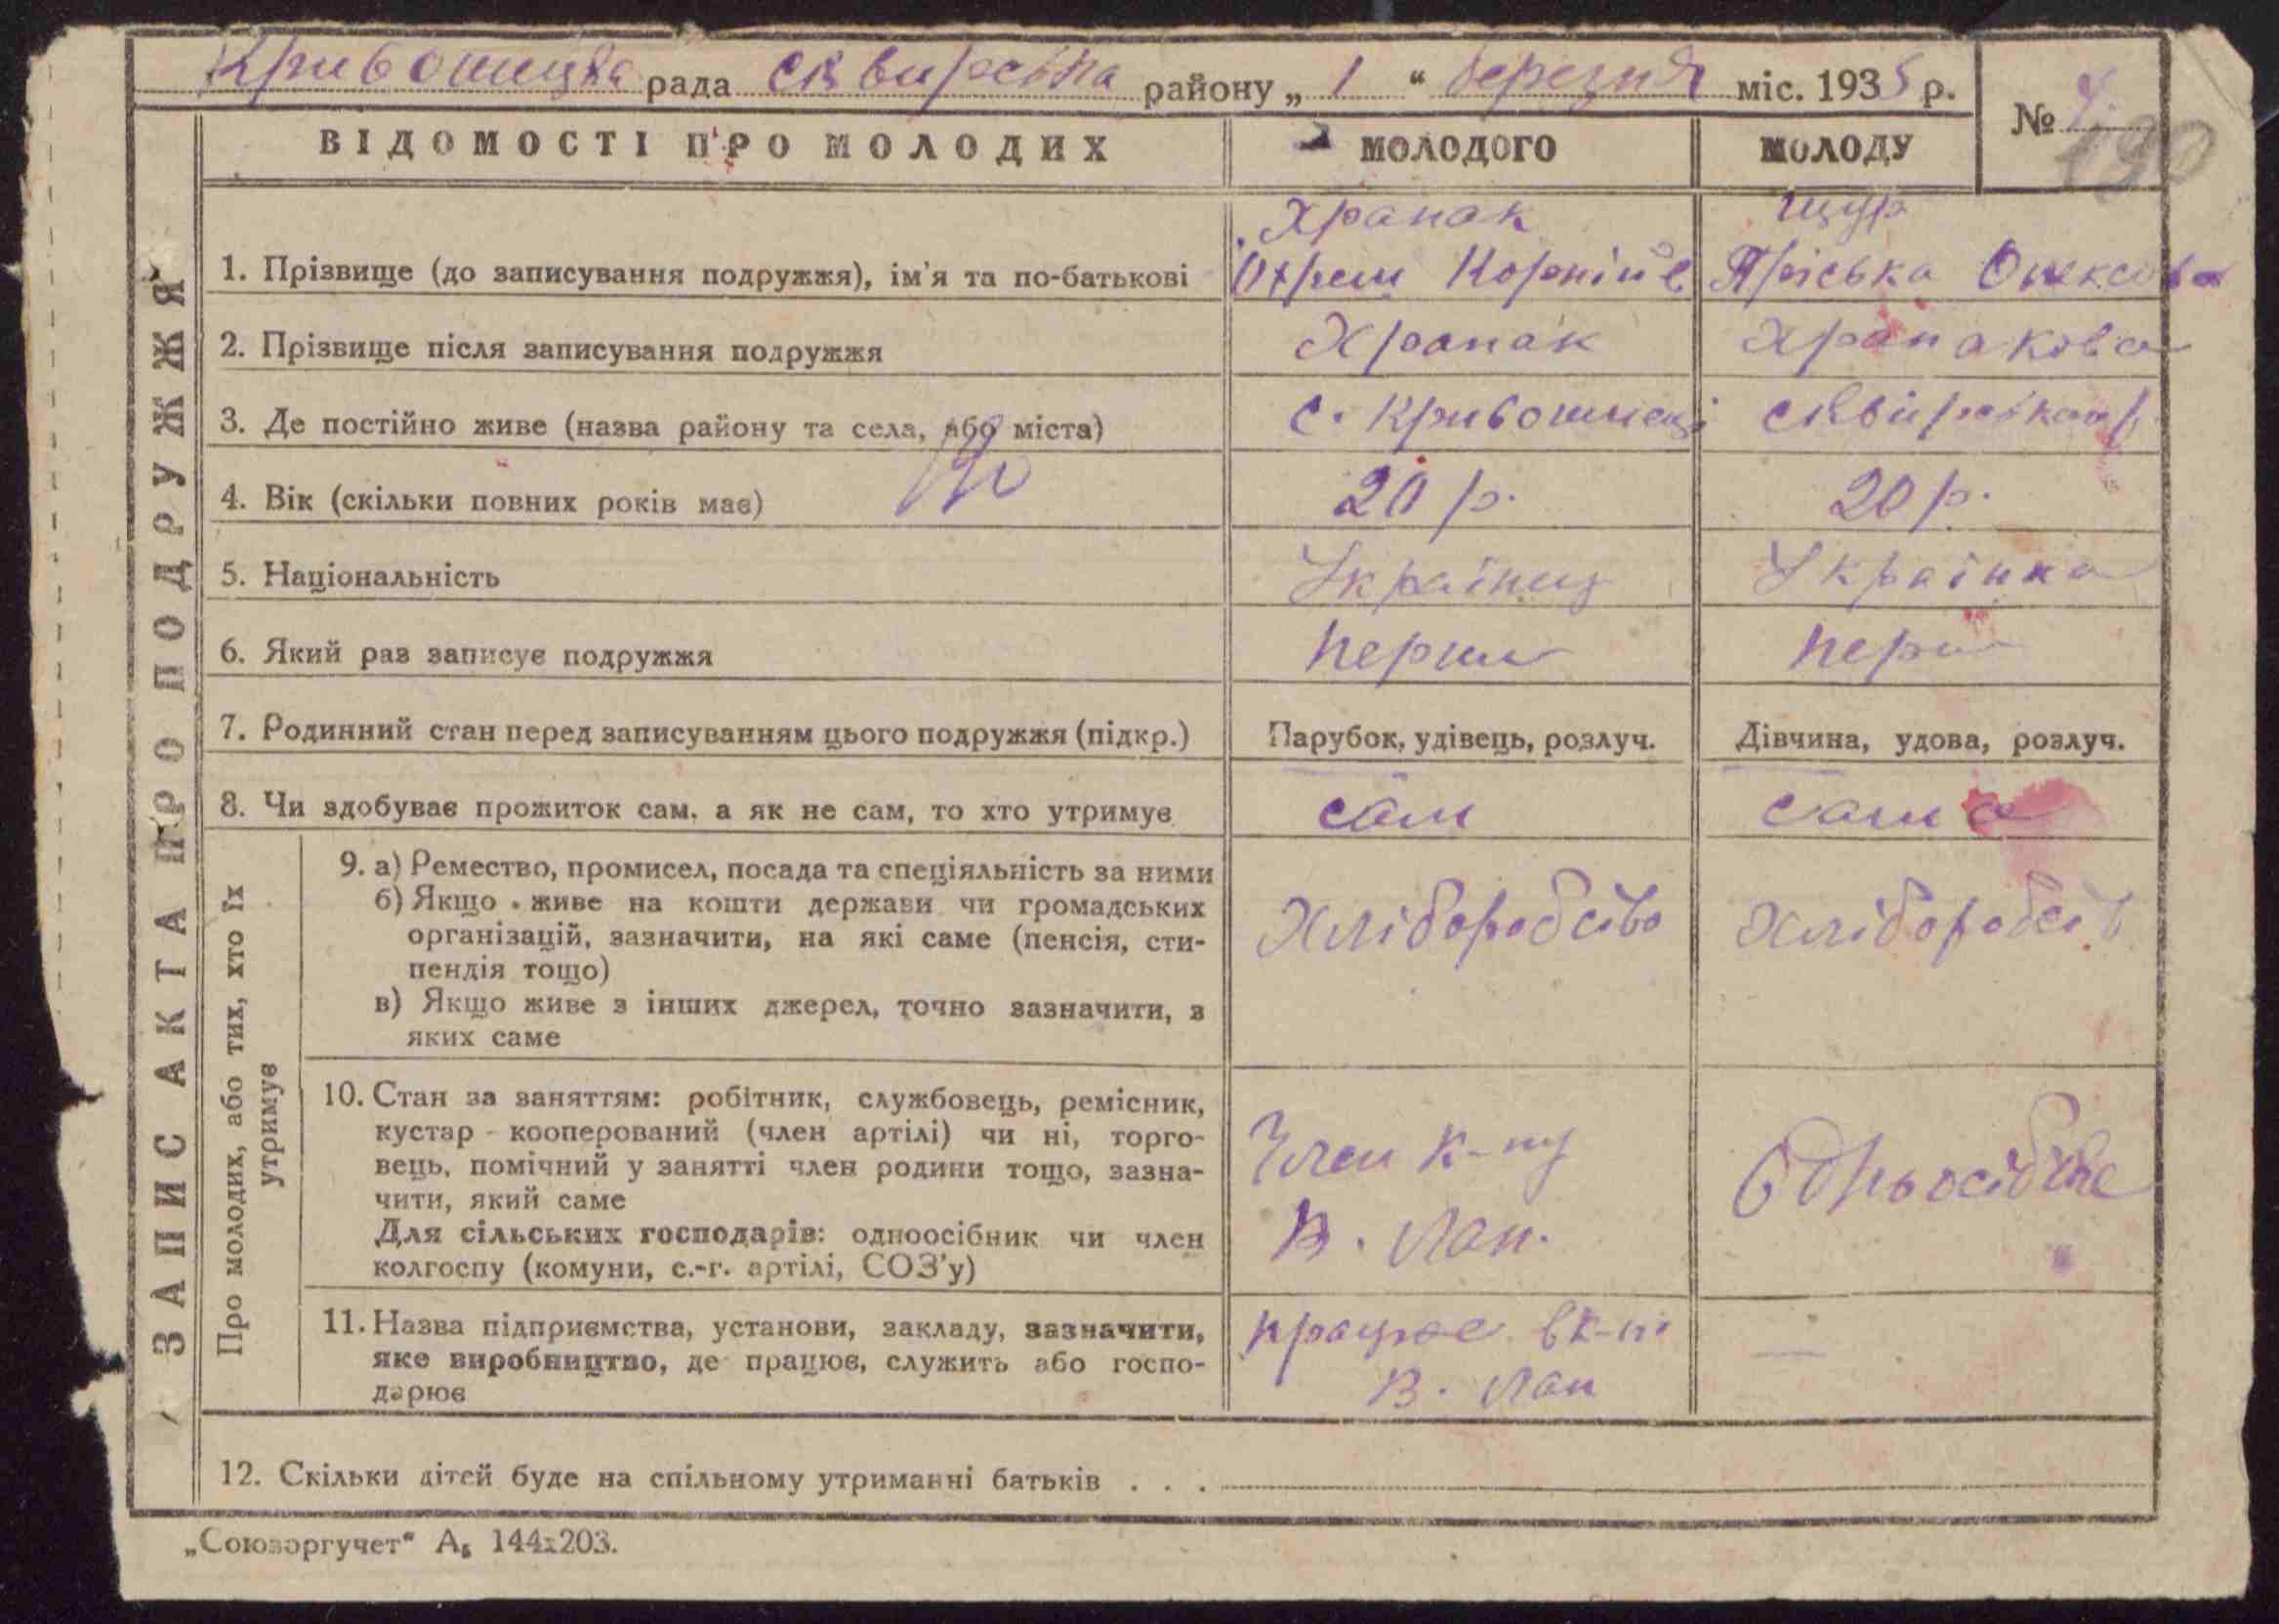 Кривошицька рада Сквирська району „ 1 “ березня міс. 1935 р.
№ 4.
190
ВІДОМОСТІ ПРО МОЛОДИХ
МОЛОДОГО
МОЛОДУ
ЗАПИС АКТА ПРО ПОДРУЖЖЯ
1. Прізвище (до записування подружжя), ім'я та по-батькові
Храпак
Охрем Корнійов
Щур
Пріська Олексова
2. Прізвище після записування подружжя
Храпак
Храпакова
3. Де постійно живе (назва району та села, або міста)
с. Кривошиєці
Сквирськ р.
4. Вік (скільки повних років має)
20 р.
20 р.
5. Національність
Українец
Українка
6. Який раз записує подружжя
перш
перш
7. Родинний стан перед записуванням цього подружжя (підкр.)
Парубок, удівець, розлуч.
Дівчина, удова, розлуч.
8. Чи здобуває прожиток сам, а як не сам, то хто утримує
сам
сама
Про молодих, або тих, хто їх
утримує
9. а) Ремество, промисел, посада та спеціяльність за ними
б) Якщо живе на кошти держави чи громадських
організацій, зазначити, на які саме (пенсія, сти-
пендія тощо)
в) Якщо живе з інших джерел, точно зазначити, з
яких саме
Хліборобство
Хліборобств
10. Стан за заняттям: робітник, службовець, ремісник,
кустар - кооперований (член артілі) чи ні, торго-
вець, помічний у занятті член родини тощо, зазна-
чити, який саме
Для сільських господарів: одноосібник чи член
колгоспу (комуни, с.-г. артілі, СОЗ'у)
Член к-пу
В. Лан.
11. Назва підприємства, установи, закладу, зазначити,
яке виробництво, де працює, служить або госпо-
дарює
працює в к-пі
В. Лан
—
12. Скільки дітей буде на спільному утриманні батьків . . .
„Союзоргучет“ А₅ 144x203.